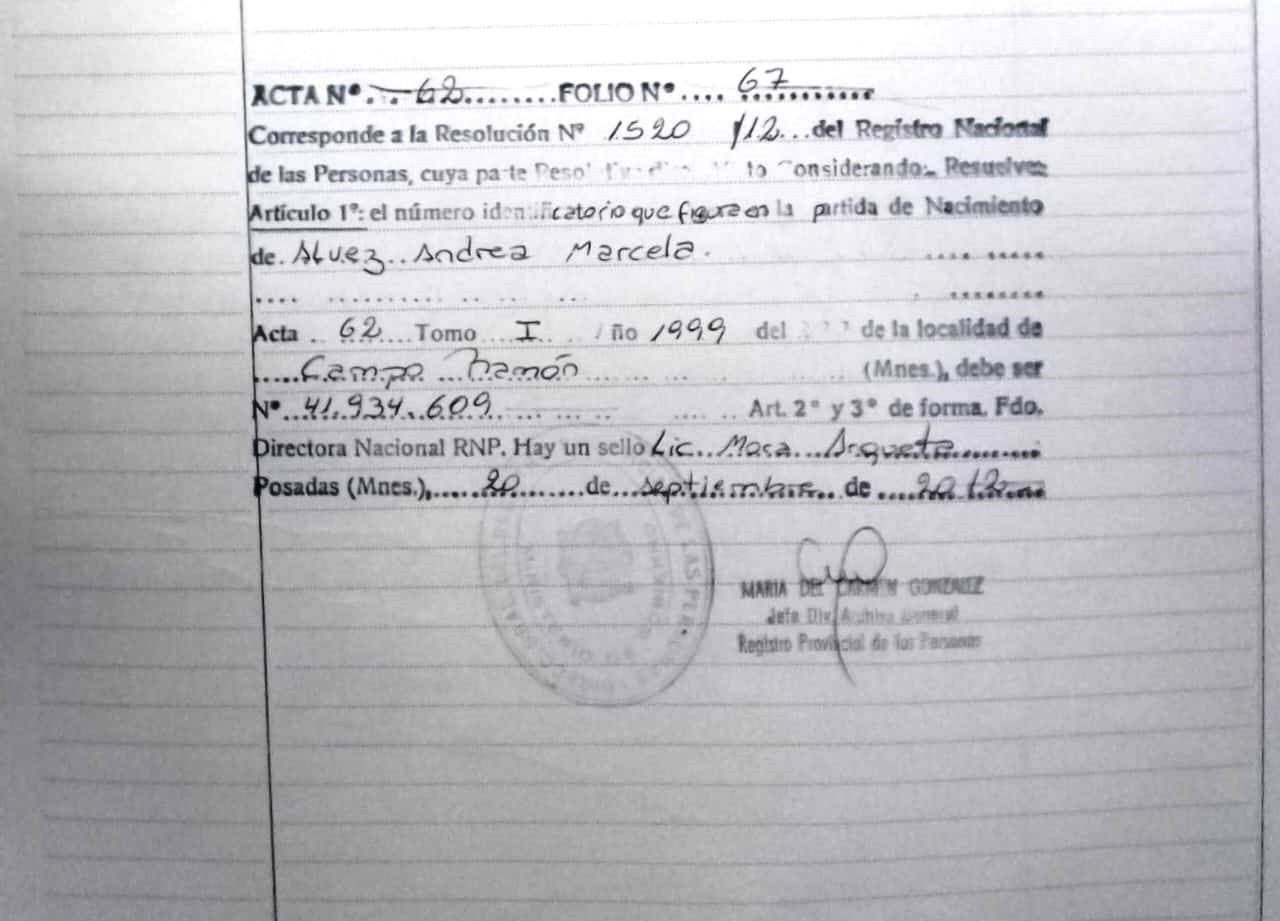 ACTA Nº. 62 ........ FOLIO Nº .... 67 ...........
Corresponde a la Resolución Nº 1520 /12... del Registro Nacional
de las Personas, cuya parte Considerando: Resuelve:
Artículo 1º: el número identificatorio que figura en la partida de Nacimiento
de. Alvez.. Andrea Marcela.
Acta .. 62 .... Tomo ... I ... Año 1999 del de la localidad de
..... Campo ... Ramón (Mnes.), debe ser
Nº .. 41.934.609 .... Art. 2º y 3º de forma. Fdo.
Directora Nacional RNP. Hay un sello Lic.. Mora...
Posadas (Mnes.),..... 20 ....... de ... septiembre.. de .... 2012
MARIA DEL CARMEN GONZALEZ
Jefa Div. Archivo General
Registro Provincial de las Personas